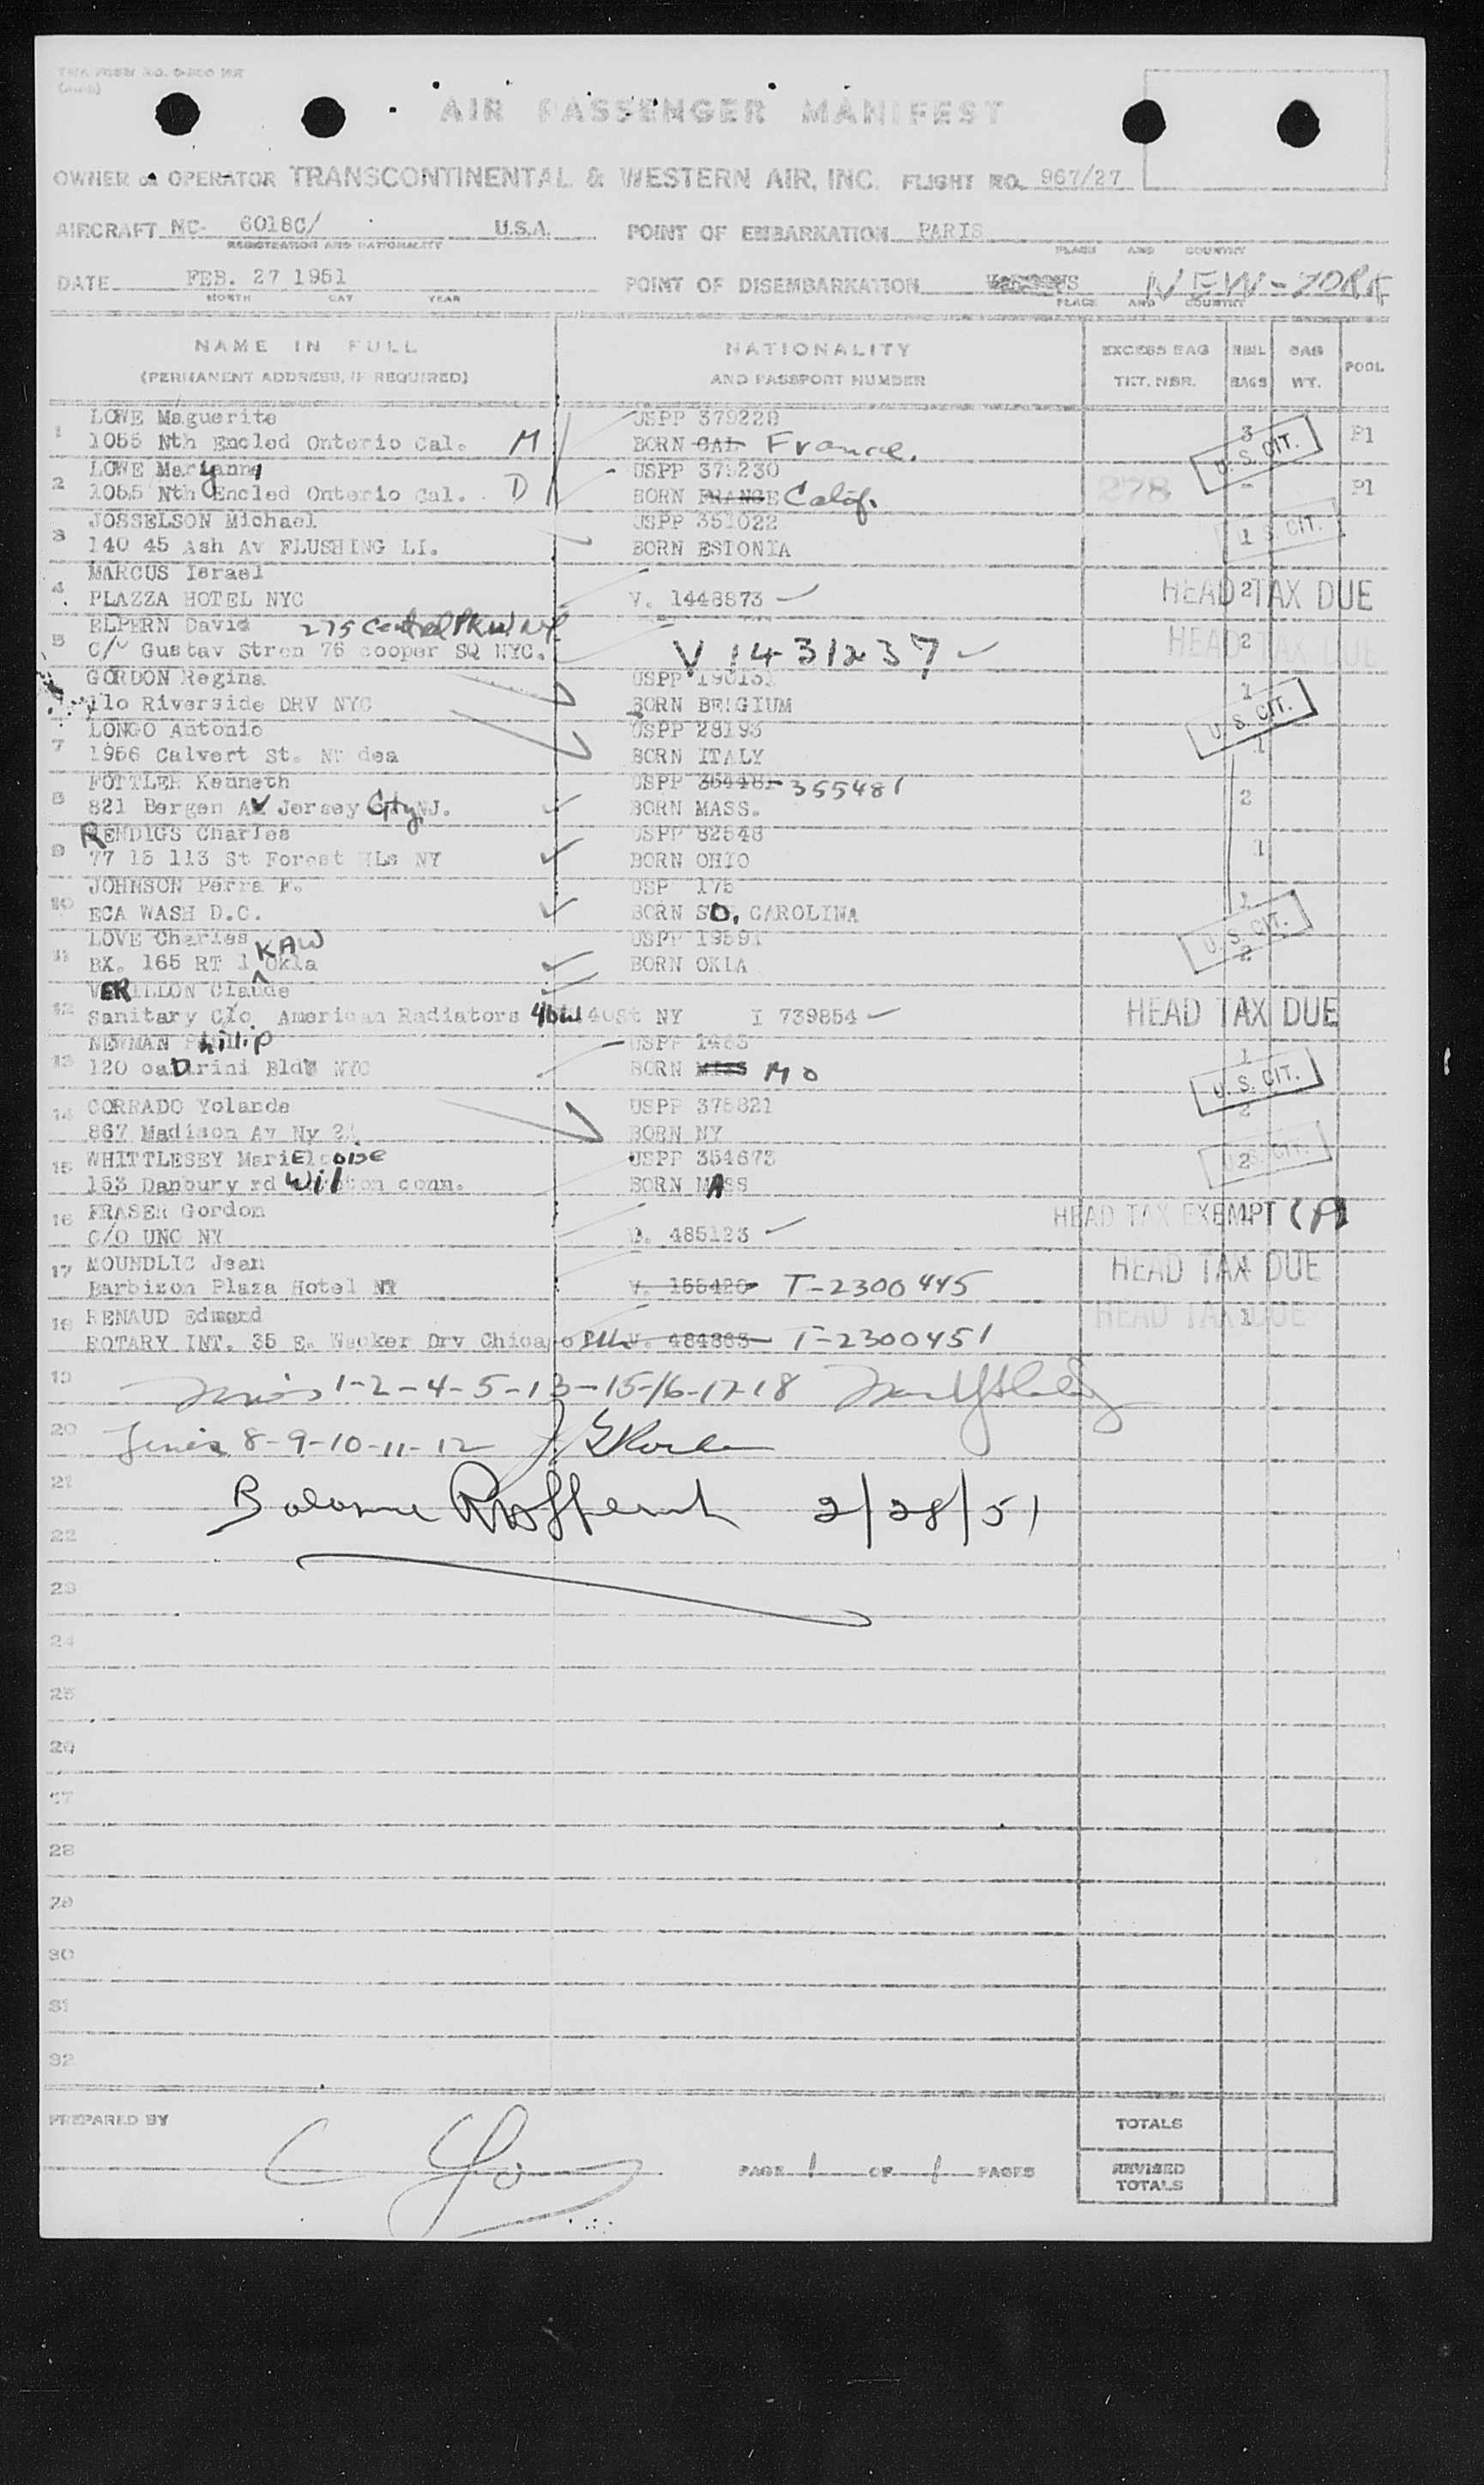 AIR PASSENGER MANIFEST
OWNER OR OPERATOR TRANSCONTINENTAL & WESTERN AIR, INC. FLIGHT NO. 967/27
AIRCRAFT NC- 6018C/ U.S.A. POINT OF EMBARKATION PARIS
REGISTRATION AND NATIONALITY PLACE AND COUNTRY
DATE FEB. 27 1951 POINT OF DISEMBARKATION NEW-YORK
MONTH DAY YEAR PLACE AND COUNTRY
NAME IN FULL NATIONALITY EXCESS BAG NBR. BAG POOL
(PERMANENT ADDRESS, IF REQUIRED) AND PASSPORT NUMBER TKT. NBR. BAGS WT.
LOWE Maguerite USPP 379229
1 1055 Nth Encled Onterio Cal. M BORN CAL France. 3 U.S. CIT. P1
LOWE Maryanne USPP 379230
2 1055 Nth Encled Onterio Cal. D BORN FRANCE Calif. 278 - P1
JOSSELSON Michael USPP 351022
3 140 45 Ash Av FLUSHING LI. BORN ESTONIA 1 U.S. CIT.
MARCUS Israel
4 PLAZZA HOTEL NYC V. 1448873 HEAD TAX DUE 2
ELPERN David 275 Central Pk W NY
5 C/o Gustav Stren 76 cooper SQ NYC. V 1431237 HEAD TAX DUE 2
GORDON Regina USPP 190131
110 Riverside DRV NYC BORN BELGIUM 1 U.S. CIT.
LONGO Antonio USPP 28193
7 1956 Calvert St. BORN ITALY 1
FOTTLER Kenneth USPP 355481
8 821 Bergen Av Jersey City NJ. BORN MASS. 2
RENDIGS Charles USPP 82548
9 77 15 113 St Forest HLs NY BORN OHIO 1
JOHNSON Perra F. USP 175
10 ECA WASH D.C. BORN SO. CAROLINA 1 U.S. CIT.
LOVE Charles USPP 19591
11 BX. 165 RT 1 KAW Okla BORN OKLA 2
VERILLON Claude
12 Sanitary C/o American Radiators 40W 40St NY I 739854 HEAD TAX DUE
NEWMAN Phillip USPP 1483
13 BORN MO 1 U.S. CIT.
14 CORRADO Yolande USPP 375821 2
867 Madison Av Ny 21 BORN NY
15 WHITTLESEY MariEloise USPP 354673 2 U.S. CIT.
153 Danbury rd Wilton conn. BORN MASS
16 FRASER Gordon HEAD TAX EXEMPT
C/O UNO NY D. 485123
17 MOUNDLIC Jean HEAD TAX DUE
Barbizon Plaza Hotel NY V. 155420 T-2300445
18 RENAUD Edmond HEAD TAX DUE 1
ROTARY INT. 35 E. Wacker Drv Chicago Ill V. 484883 T-2300451
19 1-2-4-5-13-15-16-17-18
20 8-9-10-11-12
21 2/28/51
22
23
24
25
26
27
28
29
30
31
32
PREPARED BY TOTALS
PAGE 1 OF 1 PAGES REVISED
TOTALS